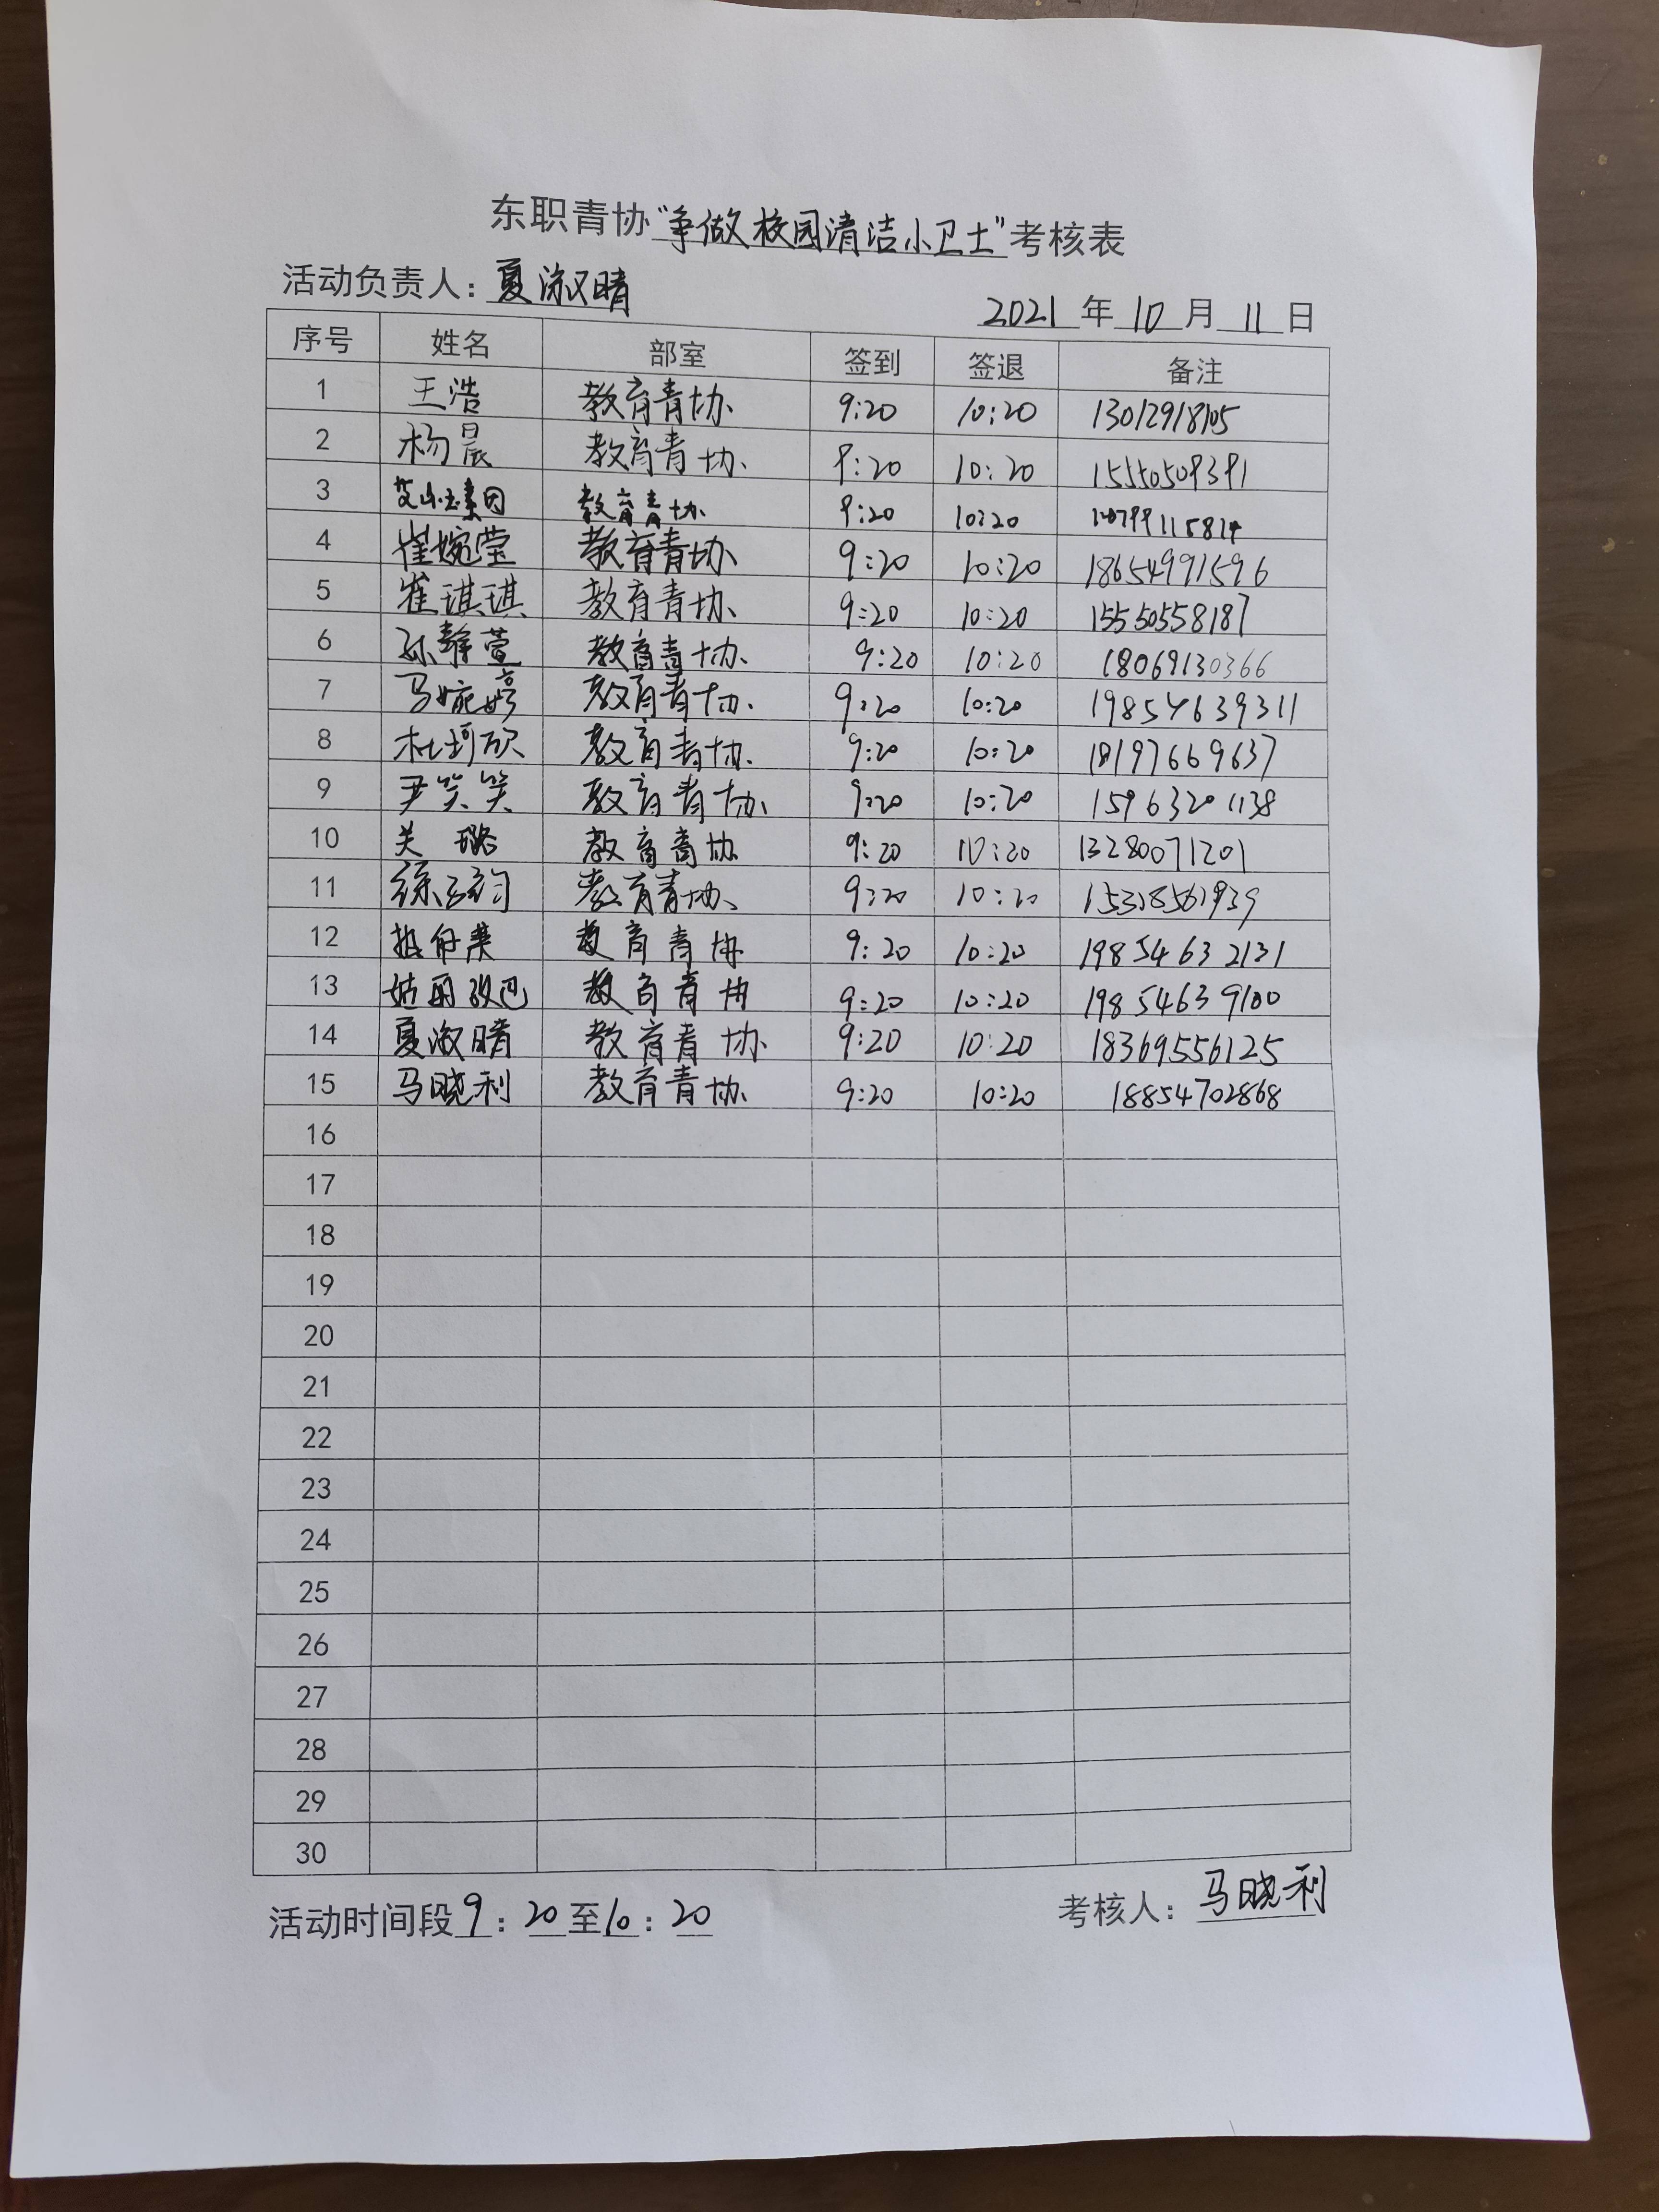 东职青协“争做校园清洁小卫士”考核表
活动负责人：夏淑晴
2021 年 10 月 11 日
序号 姓名 部室 签到 签退 备注
1 王浩 教育青协 9:20 10:20 13012918105
2 杨晨 教育青协 9:20 10:20 15550509391
3 教育青协 9:20 10:20
4 崔婉莹 教育青协 9:20 10:20 18654991596
5 崔琪琪 教育青协 9:20 10:20 15550558187
6 孙静萱 教育青协 9:20 10:20 18069130366
7 马婉婷 教育青协 9:20 10:20 19854639311
8 杜珂欣 教育青协 9:20 10:20 18197669637
9 尹笑笑 教育青协 9:20 10:20 15963201138
10 关璐 教育青协 9:20 10:20 13280071201
11 教育青协 9:20 10:20
12 教育青协 9:20 10:20 19854632131
13 教育青协 9:20 10:20 19854639100
14 夏淑晴 教育青协 9:20 10:20 18369556125
15 马晓利 教育青协 9:20 10:20 18854702868
16
17
18
19
20
21
22
23
24
25
26
27
28
29
30
活动时间段 9：20 至 10：20
考核人：马晓利